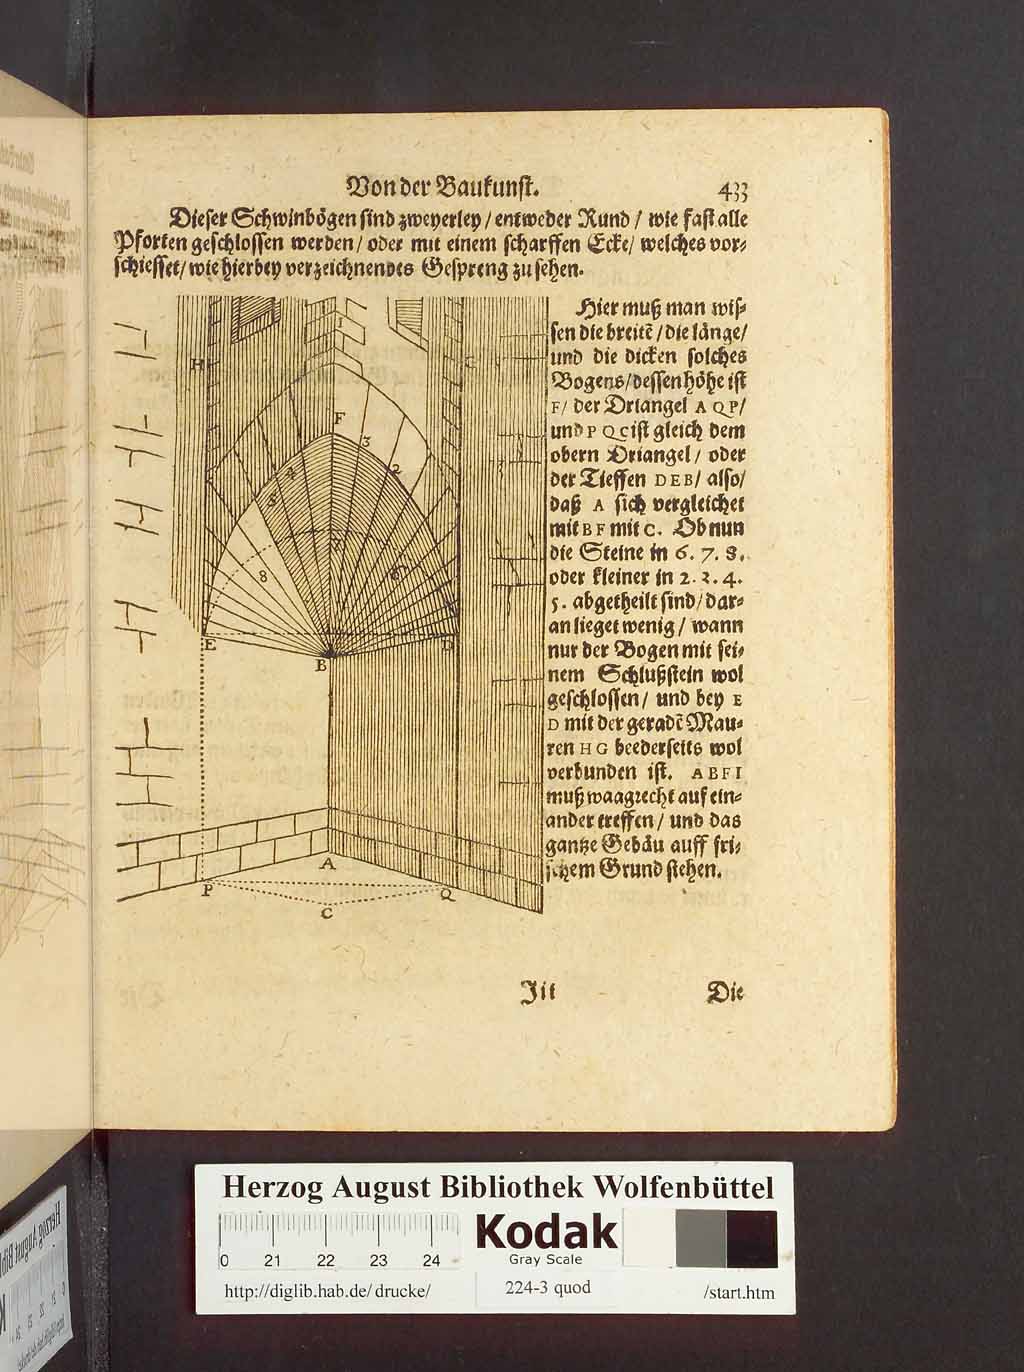 Von der Baukunst. 433
Dieser Schwinbögen sind zweyerley / entweder Rund / wie fast alle
Pforten geschlossen werden / oder mit einem scharffen Ecke / welches vor-
schiesset / wie hierbey verzeichnendes Gespreng zu sehen.
Hier muß man wis-
sen die breitē / die länge /
und die dicken solches
Bogens / dessen höhe ist
F / der Driangel A Q P /
und P Q C ist gleich dem
obern Driangel / oder
der Tieffen D E B / also /
daß A sich vergleichet
mit B F mit C. Ob nun
die Steine in 6. 7. 8.
oder kleiner in 2. 3. 4.
5. abgetheilt sind / dar-
an lieget wenig / wann
nur der Bogen mit sei-
nem Schlußstein wol
geschlossen / und bey E
D mit der geradē Mau-
ren H G beederseits wol
verbunden ist. A B F I
muß waagrecht auf ein-
ander treffen / und das
gantze Gebäu auff fri-
schem Grund stehen.
I
H
G
F
3
4
2
5
7
8
6
E
D
B
A
P
Q
C
Jii Die
Herzog August Bibliothek Wolfenbüttel
0 21 22 23 24
Kodak
Gray Scale
http://diglib.hab.de/drucke/ 224-3 quod /start.htm